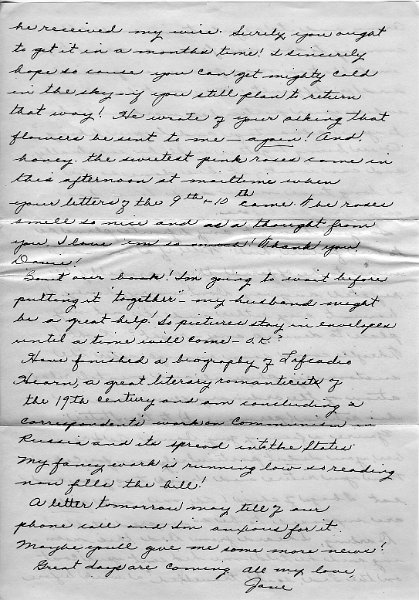 he received my wire. Surely you ought
to get it in a months time! I sincerely
hope so cause you can get mighty cold
in the sky - if you still plan to return
that way! He wrote of your asking that
flowers be sent to me - again! And
honey the sweetest pink roses came in
this afternoon at mailtime when
your letters of the 9th - 10th came. The roses
smell so nice and as a thought from
you, I love 'em so much! Thank you
'Bout our book! I'm going to wait before
putting it "together" - my husband might
be a great help! So pictures stay in envelopes
until a time will come - O.K.?
Have finished a biography of Lafcadio
Hearn, a great literary romanticist of
the 19th century and am concluding a
correspondents work on Communism in
Russia and its spread into the States.
My fancy work is running low so reading
now fills the bill!
A letter tomorrow may tell of our
phone call and I'm anxious for it.
Maybe you'll give me some more news!
Great days are coming. All my love,
Jane